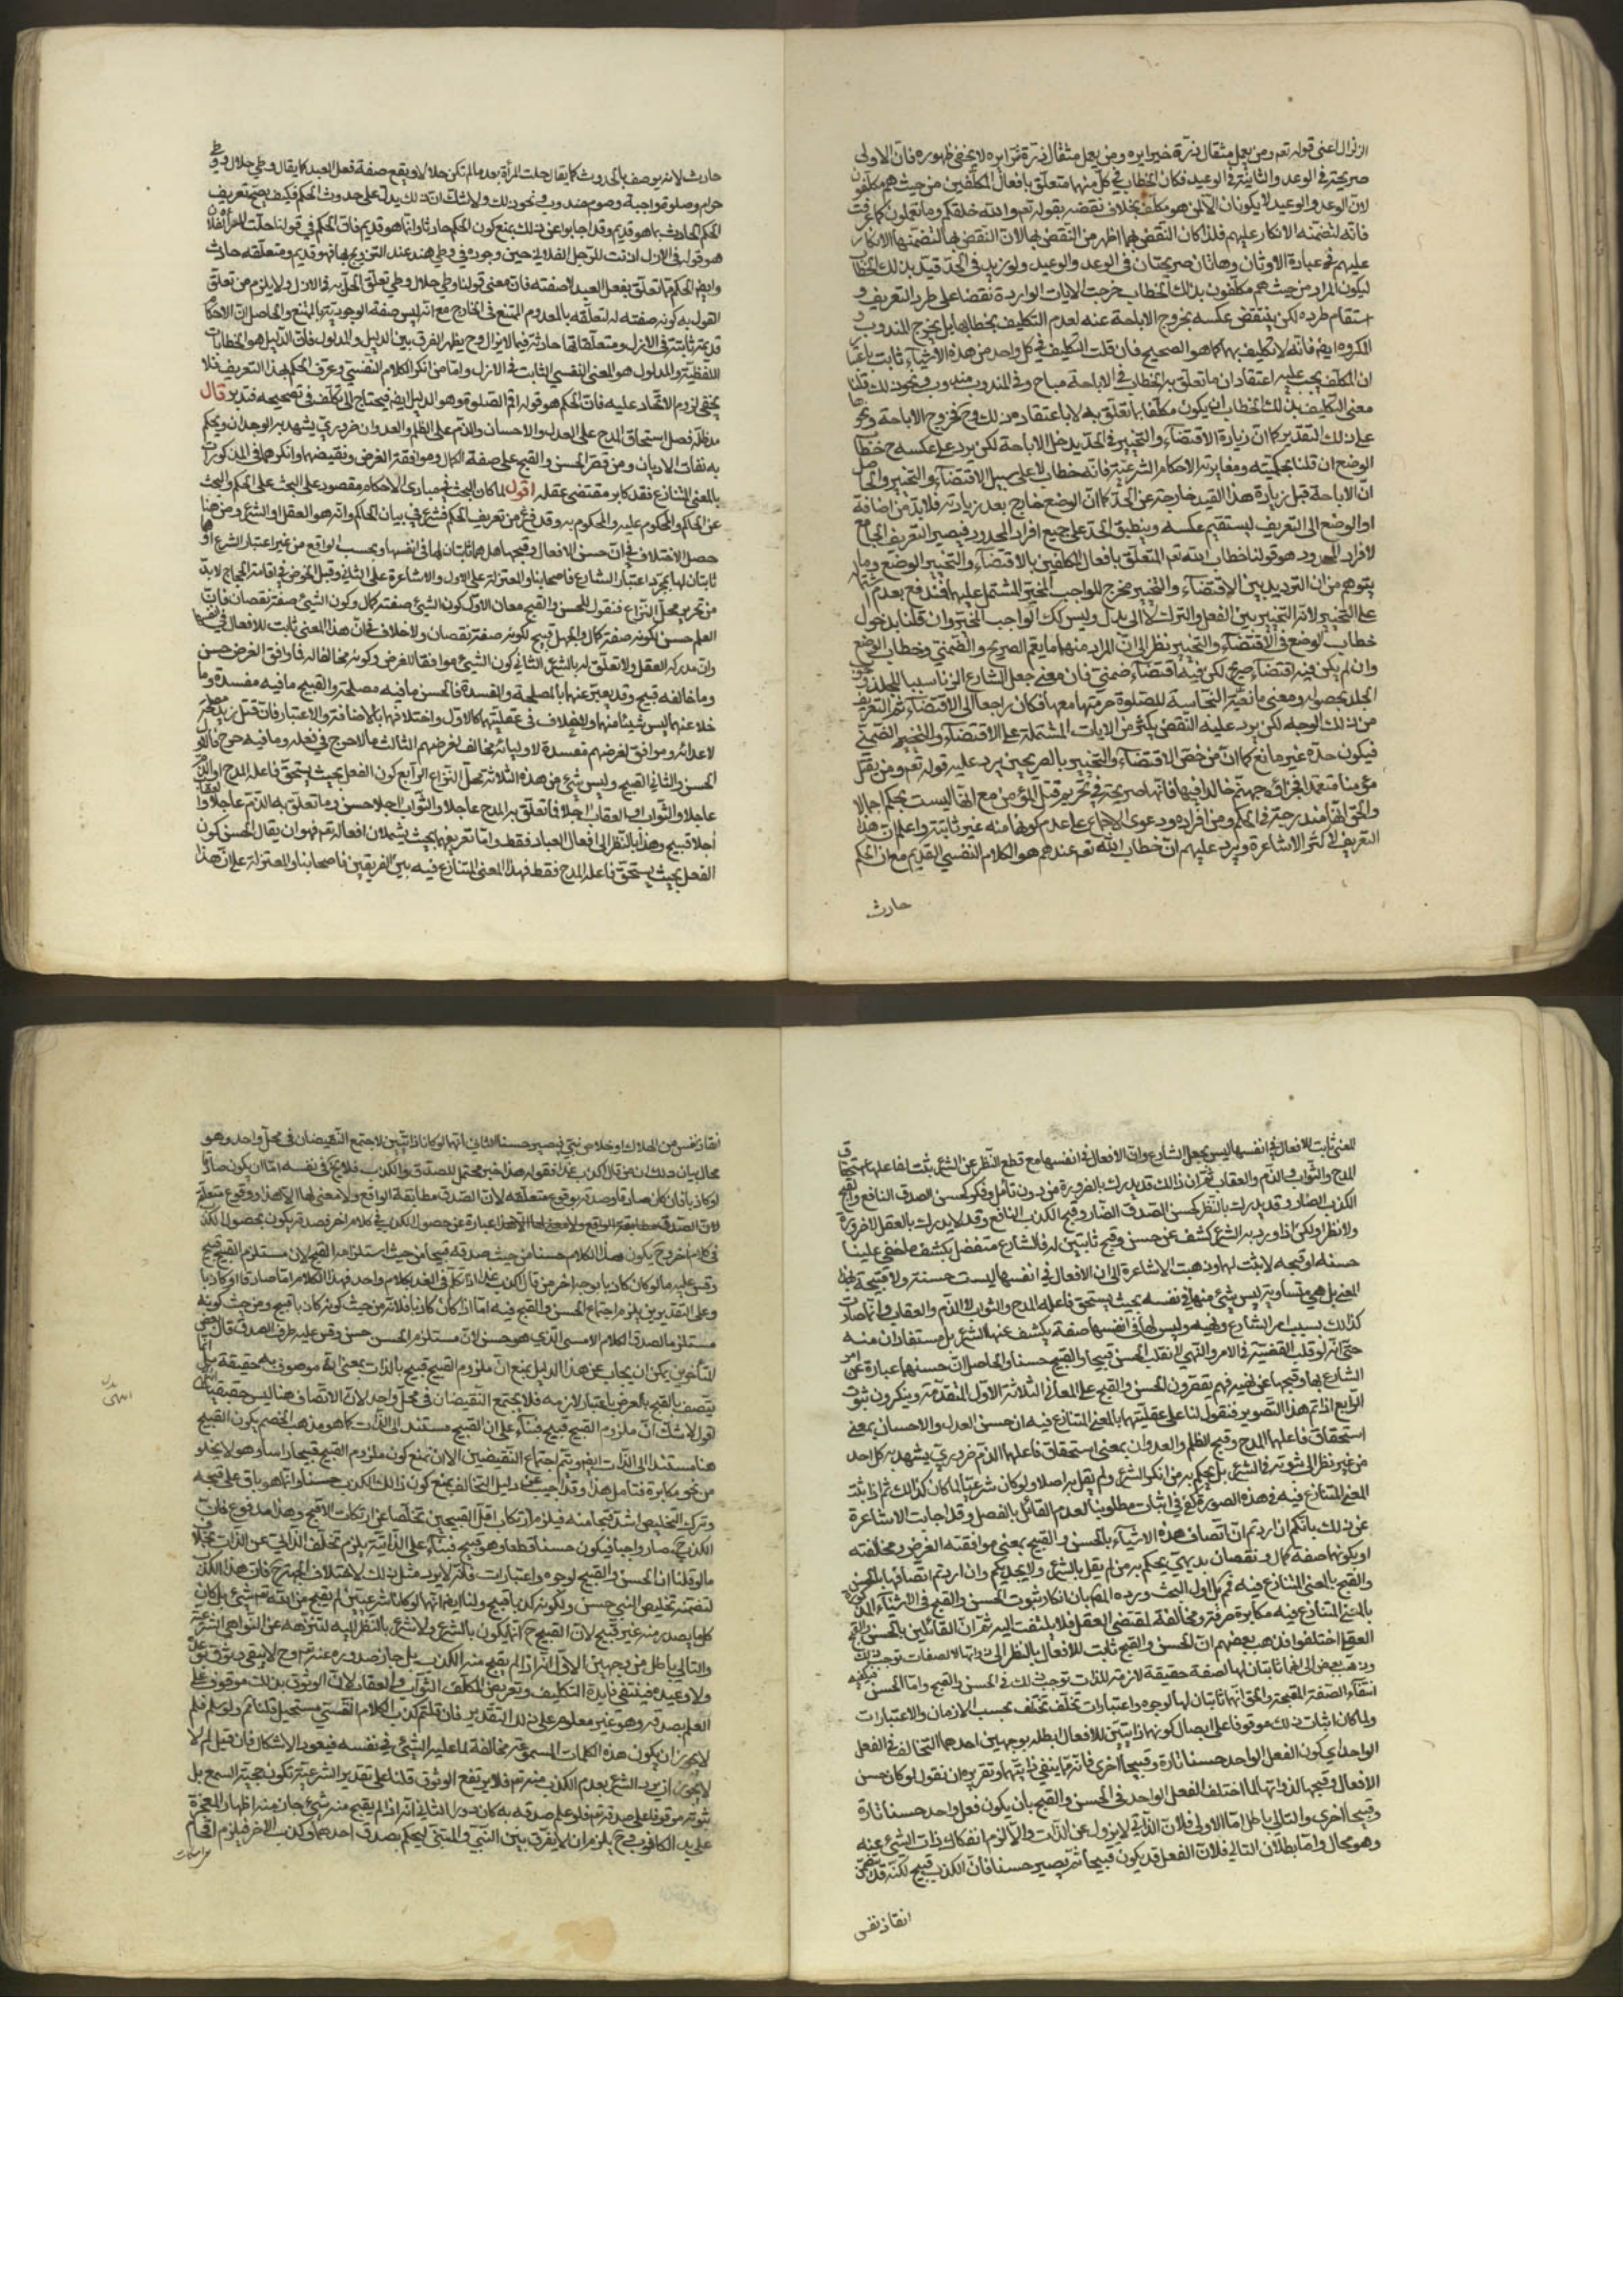 الزلزال اعنى قوله تعم ومن يعمل مثقال ذرة خيرا يره ومن يعمل مثقال ذرة شرا يره لا يخفى ظهوره فان الاولى
صريحة في الوعد والثانية في الوعيد فكان الخطاب في كل منهما متعلق بافعال المكلفين من حيث هم مكلفون
لان الوعد والوعيد لا يكونان الا لمن هو مكلف بخلاف نقضه بقوله تعم والله خلقكم وما تعملون كما عرفت
فانه لتضمنه الانكار عليهم فلذا كان النقض بهما اظهر من النقض بها لان النقض بها لتضمنها الانكار
عليهم في عبادة الاوثان وهاتان صريحتان في الوعد والوعيد ولو زيد في الحد قيد بذلك الخطاب
ليكون المراد من حيث هم مكلفون بذلك الخطاب خرجت الايات الواردة نقضا على طرد التعريف و
استقام طرده لكن ينتقض عكسه بخروج الاباحة عنه لعدم التكليف بخطابها بل يخرج المندوب و
المكروه ايضا فانه لا تكليف بهما كما هو الصحيح فان قلت التكليف في كل واحد من هذه الاشياء ثابت باعتبار
ان المكلف يجب عليه اعتقاد ان ما تعلق به الخطاب في الاباحة مباح وفي المندوب مندوب ونحو ذلك قلنا
معنى التكليف بذلك الخطاب ان يكون مكلفا بما تعلق به لا باعتقاد من ذلك وح تخرج الاباحة ونحوها
على ذلك التقدير كما ان زيادة الاقتضاء والتخيير في الحد يدخل الاباحة لكن يرد على عكسه ح خطاب
الوضع ان قلنا بحكميته ومغايرته الاحكام الشرعية فانه خطاب لا على سبيل الاقتضاء والتخيير والحاصل
ان الاباحة قبل زيادة هذا القيد خارجة عن الحد كما ان الوضع خارج بعد زيادته فلا بد من اضافة
او الوضع الى التعريف ليستقيم عكسه وينطبق الحد على جميع افراد المحدود فيصير التعريف الجامع
لافراد المحدود هو قولنا خطاب الله تعم المتعلق بافعال المكلفين بالاقتضاء والتخيير او الوضع وما
يتوهم من ان الترديد بين الاقتضاء والتخيير مخرج للواجب المخير المشتمل عليهما فمندفع بعدم اشتماله
على التخيير لانه التخيير بين الفعل والترك لا الى بدل وليس كك الواجب المخير وان قلنا بدخول
خطاب الوضع في الاقتضاء والتخيير نظرا الى ان المراد منهما ما يعم الصريح والضمني وخطاب الوضع
وان لم يكن فيه اقتضاء صريح لكن فيه اقتضاء ضمني فان معنى جعل الشارع الزنا سببا للجلد وجوب
الجلد بحصوله ومعنى مانعية النجاسة للصلوة حرمتها معها فكان راجعا الى الاقتضاء تم التعريف
من ذلك الوجه لكن يرد عليه النقض بكثير من الايات المشتملة على الاقتضاء والتخيير الضمني
فيكون حده غير مانع كما ان من خص الاقتضاء والتخيير بالصريحين يرد عليه قوله تعم ومن يقتل
مؤمنا متعمدا فجزاؤه جهنم خالدا فيها فانها صريحة في تحريم قتل المؤمن مع انها ليست بحكم اجماعا
والحق انها مندرجة في الحكم ومن افراده ودعوى الاجماع على عدم كونها منه غير ثابتة واعلم ان هذا
التعريف لاكثر الاشاعرة ويرد عليهم ان خطاب الله تعم عندهم هو الكلام النفسي القديم مع ان الحكم
حادث
حادث لانه يوصف بالحدوث كما يقال حلت المرأة بعد ما لم تكن حلالا ويقع صفة فعل العبد كما يقال وطي حلال ووطي
حرام وصلوة واجبة وصوم مندوب ونحو ذلك ولا شك ان ذلك يدل على حدوث الحكم فكيف يصح تعريف
الحكم الحادث بما هو قديم وقد اجابوا عن ذلك بمنع كون الحكم حادثا وانما هو قديم فان الحكم في قولنا حلت المرأة لفلان
هو قوله في الازل اذنت للرجل الفلاني حين وجوده في وطي هند عند التزويج بها فهو قديم ومتعلقه حادث
وايضا الحكم ما تعلق بفعل العبد لا صفته فان معنى قولنا وطي حلال وطي تعلق الحل به في الازل ولا يلزم من تعلق
القول به كونه صفته له لتعلقه بالمعدوم الممتنع في الخارج مع انه ليس صفة لوجودية الممتنع والحاصل ان الاحكام
قديمة ثابتة في الازل ومتعلقاتها حادثة فيما لا يزال وح يظهر الفرق بين الدليل والمدلول فان الدليل هو الخطابات
اللفظية والمدلول هو المعنى النفسي الثابت في الازل واما من انكر الكلام النفسي وعرف الحكم بهذا التعريف فلا
يخفى لزوم الاتحاد عليه فان الحكم هو قوله اقم الصلوة وهو الدليل ايضا فيحتاج الى تكلف في تصحيحه فتدبر قال
مد ظله فصل استحقاق المدح على العدل والاحسان والذم على الظلم والعدوان ضروري يشهد به الوجدان ويحكم
به نفاة الاديان ومن قصر الحسن والقبح على صفة الكمال وموافقة الغرض ونقيضهما وانكر هما في المذكورات
بالمعنى المتنازع فقد كابر مقتضى عقله اقول لما كان البحث في مبادى الاحكام مقصود على البحث على الحكم والبحث
عن الحاكم والمحكوم عليه والمحكوم به وقد فرغ من تعريف الحكم فشرع في بيان الحاكم وانه هو العقل او الشرع ومن هنا
حصل الاختلاف في ان حسن الافعال وقبحها هل هما ثابتان لها في انفسها وبحسب الواقع من غير اعتبار الشرع او
ثابتان لها بمجرد اعتبار الشارع فاصحابنا والمعتزلة على الاول والاشاعرة على الثاني وقبل الخوض في اقامة الحجاج لا بد
من تحرير محل النزاع فنقول للحسن والقبح معان الاول كون الشئ صفة كمال وكون الشئ صفة نقصان فان
العلم حسن لكونه صفة كمال والجهل قبيح لكونه صفة نقصان ولا خلاف في ان هذا المعنى ثابت للافعال في نفسها
وان مدركه العقل ولا تعلق له بالشرع الثاني كون الشئ موافقا للغرض وكونه مخالفا له فما وافق الغرض حسن
وما خالفه قبيح وقد يعبر عنهما بالمصلحة والمفسدة فالحسن ما فيه مصلحة والقبيح ما فيه مفسدة وما
خلا عنهما ليس شيئا منهما ولا خلاف في عقليتها كالاول واختلافها بالاضافة والاعتبار فان قتل زيد مصلحة
لاعدائه وموافق لغرضهم مفسدة لاوليائه مخالف لغرضهم الثالث ما لا حرج في فعله وما فيه حرج فالاول
الحسن والثاني القبيح وليس شئ من هذه الثلاثة محل النزاع الرابع كون الفعل بحيث يستحق فاعله المدح او الذم
عاجلا والثواب او العقاب اجلا فما تعلق به المدح عاجلا والثواب اجلا حسن وما تعلق به الذم عاجلا والعقاب
اجلا قبيح وهذا بالنظر الى افعال العباد فقط واما تعريفهما بحيث يشملان افعاله تعم فهو ان يقال الحسن كون
الفعل بحيث يستحق فاعله المدح فقط فهذا المعنى المتنازع فيه بين الفريقين فاصحابنا والمعتزلة على ان هذا
المعنى ثابت للافعال في انفسها ليس بجعل الشارع وان الافعال في انفسها مع قطع النظر عن الشرع يثبت لفاعلها استحقاق
المدح والثواب او الذم والعقاب ثم ان ذلك قد يدرك بالضرورة من دون تأمل وفكر كحسن الصدق النافع وقبح
الكذب الضار وقد يدرك بالنظر كحسن الصدق الضار وقبح الكذب النافع وقد لا يدرك بالعقل لا ضرورة
ولا نظرا ولكن اذا ورد به الشرع كشف عن حسن وقبح ثابتين له فالشارع متفضل بكشف ما خفي علينا
حسنه او قبحه لا يثبت لها وذهبت الاشاعرة الى ان الافعال في انفسها ليست حسنة ولا قبيحة بهذا
المعنى بل هي متساوية ليس شئ منها في نفسه بحيث يستحق فاعله المدح والثواب او الذم والعقاب وانما صارت
كذلك بسبب امر الشارع ونهيه وليس لها في انفسها صفة يكشف عنها الشرع بل مستفادان منه
حتى انه لو قلب القضية في الامر والنهي لانقلب الحسن قبيحا والقبيح حسنا والحاصل ان حسنها عبارة عن امر
الشارع بها وقبحها عن نهيه فهم يقصرون الحسن والقبح على المعاني الثلاثة الاول المتقدمة وينكرون ثبوت
الرابع اذا تم هذا التصوير فنقول لنا على عقليتها بالمعنى المتنازع فيه ان حسن العدل والاحسان بمعنى
استحقاق فاعلهما المدح وقبح الظلم والعدوان بمعنى استحقاق فاعلهما الذم ضروري يشهد به كل احد
من غير نظر الى ثبوته في الشرع بل يحكم به من انكر الشرع ولم يقل به اصلا ولو كان شرعيا لما كان كذلك ثم اذا ثبت
المعنى المتنازع فيه في هذه الصورة كفى في اثبات مطلوبنا لعدم القائل بالفصل وقد اجابت الاشاعرة
عن ذلك بانكم ان اردتم ان اتصاف هذه الاشياء بالحسن والقبح بمعنى موافقته الغرض ومخالفته
او بكونها صفة كمال ونقصان بديهي يحكم به من لم يقل بالشرع ولا يجديكم وان اردتم اتصافها بالحسن
والقبح بالمعنى المتنازع فيه فمم بل اول البحث ورده المص بان انكار ثبوت الحسن والقبح في الاشياء المذكورة
بالمعنى المتنازع فيه مكابرة صرفة ومخالفة لمقتضى العقل فلا يلتفت اليه ثم ان القائلين بالحسن والقبح
العقلي اختلفوا فذهب بعضهم ان الحسن والقبح ثابت للافعال بالنظر الى ذواتها لا لصفات توجب ذلك
وذهب بعض الى انهما ثابتان لها لصفة حقيقية لازمة للذات توجب ذلك في الحسن والقبح واما الحسن فيكفيه
انتفاء الصفة المقبحة والحق انهما ثابتان لها لوجوه واعتبارات تختلف بحسب الازمان والاعتبارات
ولما كان اثبات ذلك موقوفا على ابطال كونهما ذاتيين للافعال ابطله بوجهين احدهما التخالف في الفعل
الواحد اي كون الفعل الواحد حسنا تارة وقبيحا اخرى فانه مما ينفي ذاتيتها وتقريره ان نقول لو كان حسن
الافعال وقبحها لذواتها لما اختلف الفعل الواحد في الحسن والقبح بان يكون فعل واحد حسنا تارة
وقبيحا اخرى والتالي باطل اما الاولى فلان الذاتي لا يزول عن الذات والا لزم انفكاك ذات الشئ عنه
وهو محال واما بطلان التالي فلان الفعل قد يكون قبيحا ثم يصير حسنا فان الكذب قبيح لكنه قد يتضمن
انقاذ نفس
انقاذ نفس من الهلاك او خلاص نبي فيصير حسنا الثاني انهما لو كانا ذاتيين لاجتمع النقيضان في محل واحد وهو
محال بيان ذلك ان من قال اكذب غدا فقوله هذا خبر محتمل للصدق والكذب فلا يخ في نفسه اما ان يكون صادقا
او كاذبا فان كان صادقا وصدقه بوقوع متعلقه لان الصدق مطابقة الواقع ولا معنى لها الا هذا ووقوع متعلقه
في كلام اخر وح يكون هذا الكلام حسنا من حيث صدقه قبيحا من حيث استلزامه القبيح لان مستلزم القبيح قبيح
وقس عليه ما لو كان كاذبا بوجه اخر من قال اكذب غدا اذا تكلم في الغد بكلام واحد فهذا الكلام اما صادقا او كاذبا
وعلى التقديرين يلزم اجتماع الحسن والقبح فيه اما اذا كان كاذبا فلانه من حيث كونه كاذبا قبيح ومن حيث كونه
مستلزما لصدق الكلام الامسى الذي هو حسن لان مستلزم الحسن حسن وقس عليه طرف الصدق قال بعض
المتأخرين يمكن ان يجاب عن هذا الدليل بمنع ان ملزوم القبيح قبيح بالذات بمعنى انه موصوف به حقيقة بل انما
يتصف بالقبح بالعرض باعتبار لازمه فلا يجتمع النقيضان في محل واحد لان الاتصاف هنا ليس حقيقيا
اقول لا شك ان ملزوم القبيح قبيح فبناء على ان القبيح مستند الى الذات كما هو مذهب الخصم يكون القبيح
هنا مستندا الى الذات ايضا ويتم اجتماع النقيضين الا ان تمنع كون ملزوم القبيح قبيحا راسا وهو لا يخلو
من نحو مكابرة فتأمل هذا وقد اجيب عن دليل التخالف بمنع كون ذلك الكذب حسنا وانما هو باق على قبحه
وترك التخليص اشد قبحا منه فيلزم ارتكاب اقل القبيحين تخلصا عن ارتكاب الاقبح وهذا مدفوع فان
الكذب ح صار واجبا فيكون حسنا قطعا وهو قبيح فبناء على الذاتية يلزم تخلف الذاتي عن الذات بخلاف
ما لو قلنا ان الحسن والقبح لوجوه واعتبارات فانه لا يرد مثل ذلك لاختلاف الجهة ح فان هذا الكذب
لتضمنه تخليص النبي حسن ولكونه كذبا قبيح ولنا ايضا انهما لو كانا شرعيين لم يقبح من الله تعم شئ بل كان
كلما يصدر منه غير قبيح لان القبيح ح انما يكون بالشرع ولا شرع بالنظر اليه لتنزهه عن النواهي الشرعية
والتالي باطل من وجهين الاول انه اذا لم يقبح منه الكذب بل جاز صدوره عنه تعم وح لا يبقى وثوق بوعده
ولا وعيده فينتفي فايدة التكليف وتعريض المكلف الثواب والعقاب لان الوثوق بذلك موقوف على
العلم بصدقه وهو غير معلوم على ذلك التقدير فان قلتم كذب الكلام النفسي مستحيل قلنا تم ولو سلم فلم
لا يجوز ان يكون هذه الكلمات المسموعة مخالفة لما عليه الشئ في نفسه فيعود الاشكال فان قيل لم لا
يجوز ان يرد الشرع بعدم الكذب منه تعم فلا يرتفع الوثوق قلنا على تقدير الشرعية تكون حجية السمع بل
ثبوته موقوفا على صدقه تعم فلو علم صدقه به كان دورا الثاني انه اذا لم يقبح منه شئ جاز منه اظهار المعجزة
على يد الكاذب وح يلزم ان لا يفرق بين النبي والمتنبي ليحكم بصدق احدهما وكذب الاخر فيلزم افحام